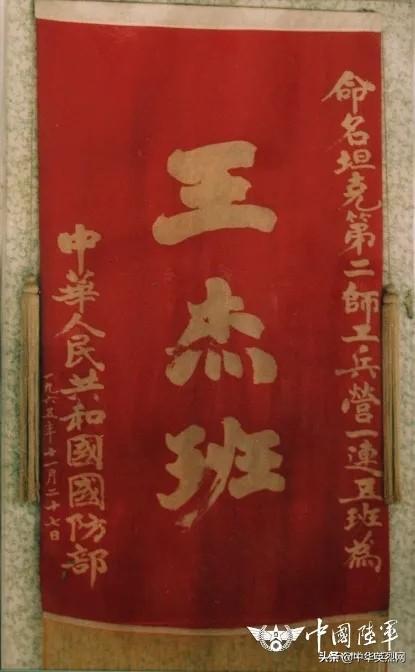 命名坦克第二師工兵營一連五班為
王杰班
中華人民共和國國防部
一九六五年十一月二十七日
中國陸軍
头条@中华英烈网